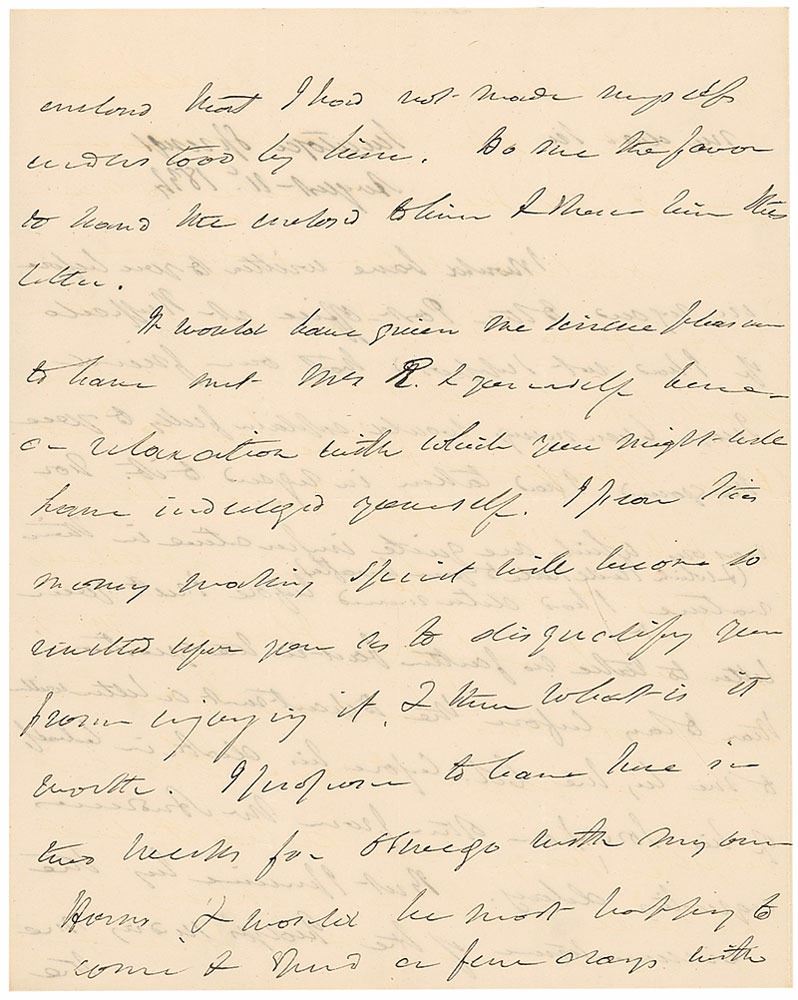 enclosd that I had not made myself
understood by him. Do me the favor
to hand the enclosd to him & shew him this
letter.
It would have given me sincere pleasure
to have met Mrs R. & yourself here—
a relaxation with which you might well
have indulged yourself. I fear this
money making spirit will become so
rivetted upon you as to disqualify you
from enjoying it, & then what is it
worth. I propose to leave here in
two weeks for Oswego with my own
Horses, I would be most happy to
come & spend a few days with